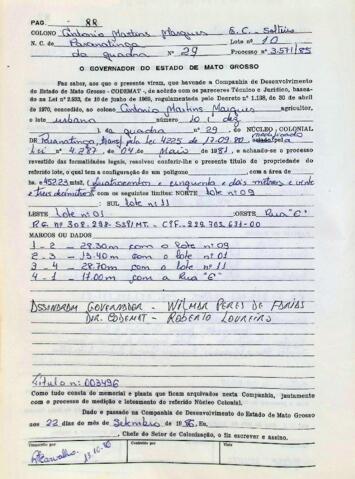 PAG. 88
COLONO Antonio Martins Marques E.C. Solteiro
N. C. de Paranatinga Lote nº 10
da quadra nº 29 Processo nº 3.571/85
O GOVERNADOR DO ESTADO DE MATO GROSSO
Faz saber, aos que o presente virem, que havendo a Companhia de Desenvolvimento
do Estado de Mato Grosso - CODEMAT -, de acordo com os pareceres Técnico e Jurídico, baseado
na Lei nº 2.933, de 19 de junho de 1969, regulamentada pelo Decreto nº 1.138, de 30 de abril
de 1970, concedido, ao colono Antonio Martins Marques agricultor,
o lote urbano número 10 (dez
). da quadra nº 29, do NÚCLEO COLONIAL
de Paranatinga, transf. pela lei 4225 de 17.09.80, modificado pela
Lei nº 4.287, de 04 de Maio de 1981, e achando-se o processo
revestido das formalidades legais, resolveu conferir-lhe o presente título de propriedade do
referido lote, o qual tem a configuração de um polígono, com a área de
ha. e 452,23 mts2 (quatrocentos e cinquenta e dois metros e vinte
e três decimetros) com os seguintes limites: NORTE lote nº 09
SUL lote nº 11
LESTE lote nº 01 OESTE Rua "E"
MARCOS OU DADOS
1 - 2 - com o lote nº 09
2 - 3 - com o lote nº 01
3 - 4 - com o lote nº 11
4 - 1 - com a Rua "E"
ASSINARAM GOVERNADOR - WILMAR PERES DE FARIAS
DIR. CODEMAT - ROBERTO LOUREIRO
Titulo nº: 003496
Como tudo consta do memorial e planta que ficam arquivados nesta Companhia, juntamente
com o processo de medição e loteamento do referido Núcleo Colonial.
Dado e passado na Companhia de Desenvolvimento do Estado de Mato Grosso
aos 22 dias do mês de Setembro de 1986, Eu,
, Chefe do Setor de Colonização, o fiz escrever e assino.
Transcrito por Conferido por Visto
Carvalho 13.10.86